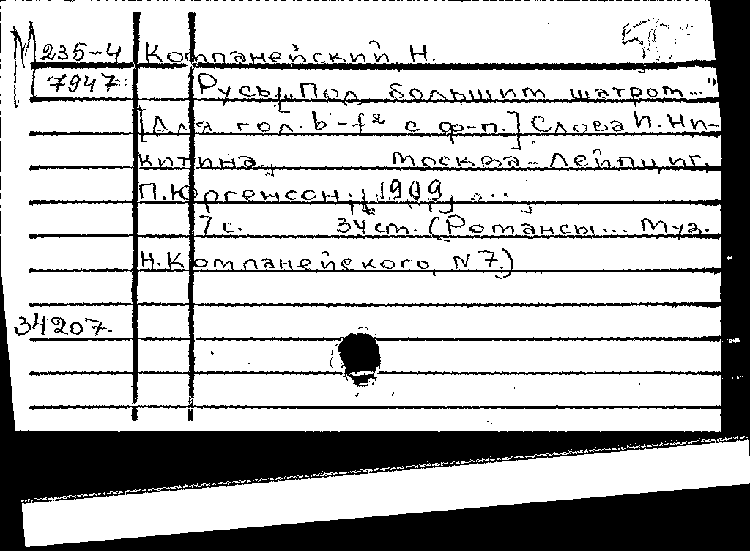 М 235-4 Компанейский, Н.
7947 Русь. "Под большим шатром..."
[Для гол. b-f² с ф-п.] Слова И. Ни-
китина. Москва-Лейпциг,
П. Юргенсон, 1909
7 с. 34 см. (Романсы... Муз.
Н. Компанейского, N 7.)
34207